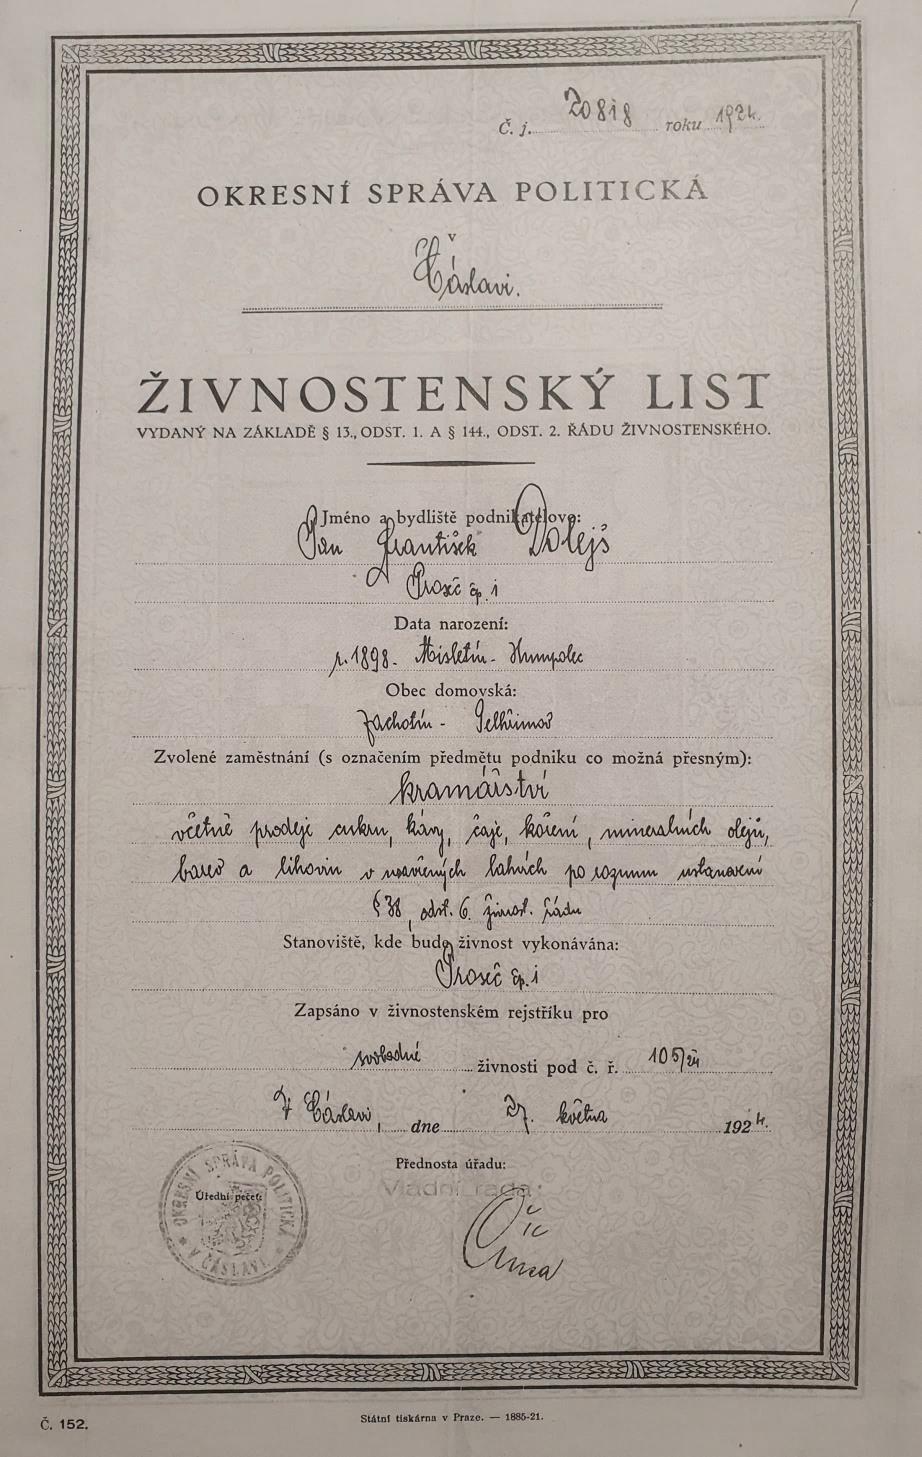 Č. j. 20818 roku 1924.
OKRESNÍ SPRÁVA POLITICKÁ
v
Čáslavi.
ŽIVNOSTENSKÝ LIST
VYDANÝ NA ZÁKLADĚ § 13., ODST. 1. A § 144., ODST. 2. ŘÁDU ŽIVNOSTENSKÉHO.
Jméno a bydliště podnikatelovo:
Jan František Dolejš
Proseč čp. 1
Data narození:
r. 1898. Misletín - Humpolec
Obec domovská:
Zachotín - Pelhřimov
Zvolené zaměstnání (s označením předmětu podniku co možná přesným):
kramářství
včetně prodeje cukru, kávy, čaje, koření, minerálních olejů,
barev a lihovin v uzavřených lahvích po rozumu ustanovení
§ 38, odst. 6. živnost. řádu
Stanoviště, kde bude živnost vykonávána:
Proseč čp. 1
Zapsáno v živnostenském rejstříku pro
svobodné živnosti pod č. ř. 105/24
V Čáslavi, dne 27. května 1924.
Přednosta úřadu:
Vládní rada:
Úřední pečeť:
OKRESNÍ SPRÁVA POLITICKÁ
V ČÁSLAVI
Č. 152.
Státní tiskárna v Praze. — 1885-21.